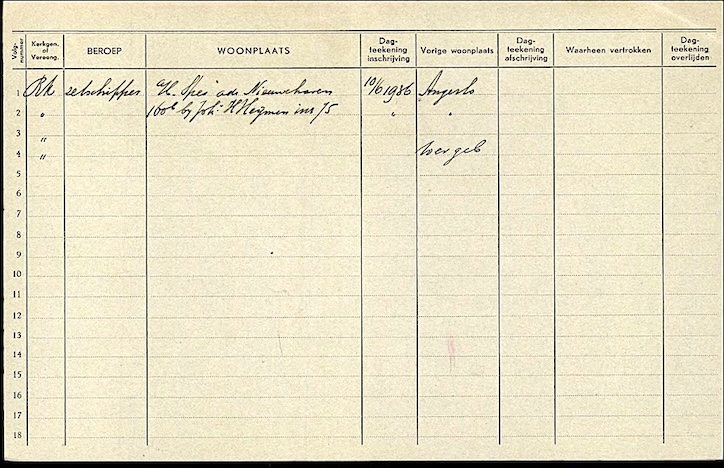 Volg-nummer Kerkgen. of Vereenig. BEROEP WOONPLAATS Dag-teekening inschrijving Vorige woonplaats Dag-teekening afschrijving Waarheen vertrokken Dag-teekening overlijden
1 Rk zetschipper a/b. "Spes" a/d Nieuwehaven 10/6 1936 Angerlo
2 " bij Joh: H Heymen " "
3 "
4 "
5
6
7
8
9
10
11
12
13
14
15
16
17
18